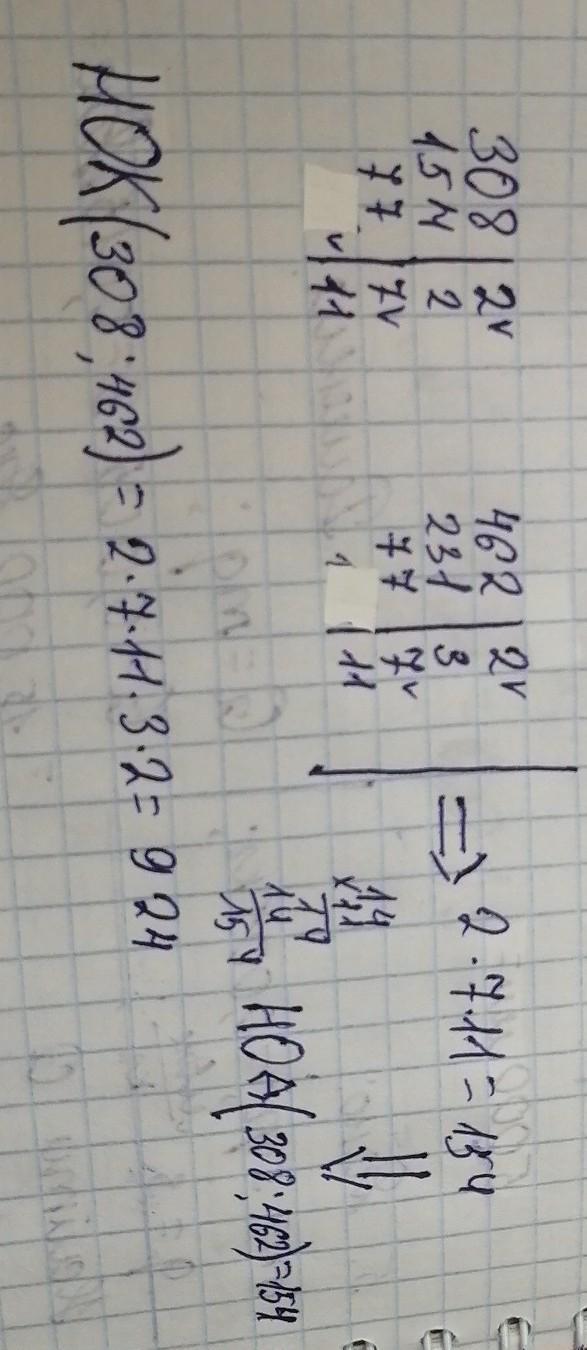 308 | 2v
154 | 2
77 | 7v
v | 11
462 | 2v
231 | 3
77 | 7v
1 | 11
⇒ 2·7·11 = 154
⇓
14
x11
14
14
154
НОД(308;462)=154
НОК(308;462) = 2·7·11·3·2= 924